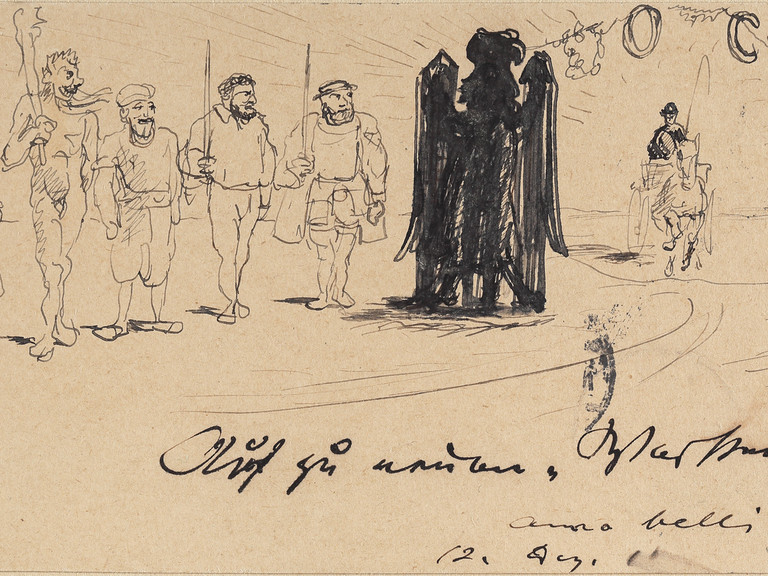 O C
Auf zu neuen „
anno belli
12. Dez.